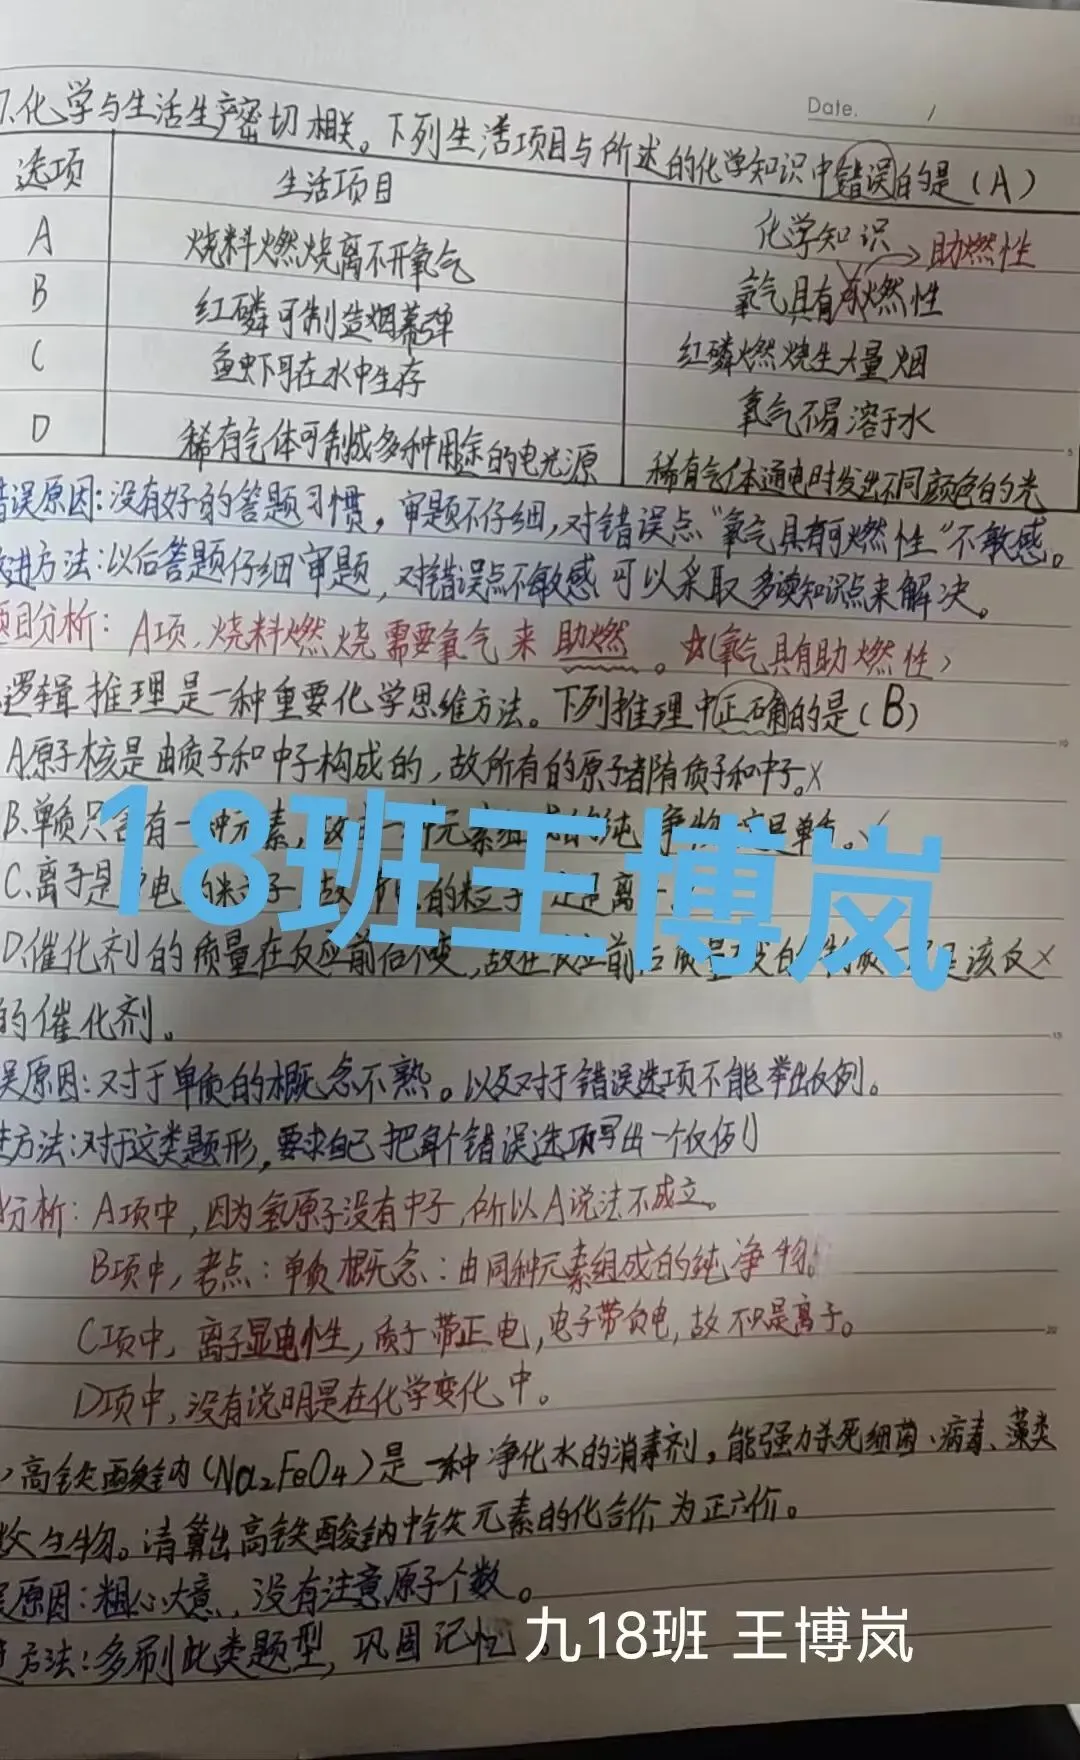 Date. /
7.化学与生活生产密切相关。下列生活项目与所述的化学知识中错误的是(A)
选项 生活项目 化学知识
A 烧料燃烧离不开氧气 氧气具有可燃性 助燃性
B 红磷可制造烟幕弹 红磷燃烧生大量烟
C 鱼虾可在水中生存 氧气不易溶于水
D 稀有气体可制成多种用途的电光源 稀有气体通电时发出不同颜色的光
错误原因:没有好的答题习惯,审题不仔细,对错误点“氧气具有可燃性”不敏感。
改进方法:以后答题仔细审题,对错误点不敏感可以采取多读知识点来解决。
题目分析:A项,烧料燃烧需要氧气来助燃。☆(氧气具有助燃性)
逻辑推理是一种重要化学思维方法。下列推理中正确的是(B)
A.原子核是由质子和中子构成的,故所有的原子都有质子和中子。×
B.单质只含有一种元素,故 一种元素组成的纯净物 是单质。✓
C.离子是 电的粒子 故 的粒子 是离
D.催化剂的质量在反应前后不变,故在反应前后质量 的物质 是该反×
的催化剂。
误原因:对于单质的概念不熟。以及对于错误选项不能举出反例。
进方法:对于这类题形,要求自己把每个错误选项写出一个反例
分析:A项中,因为氢原子没有中子,所以A说法不成立。
B项中,考点:单质概念:由同种元素组成的纯净物。
C项中,离子显电性,质子带正电,电子带负电,故不只是离子。
D项中,没有说明是在化学变化中。
高铁酸钠(Na₂FeO₄)是一种净化水的消毒剂,能强力杀死细菌、病毒、藻类
生物。请算出高铁酸钠中铁元素的化合价为正六价。
误原因:粗心大意,没有注意原子个数。
方法:多刷此类题型,巩固记忆。
18班王博岚
九18班 王博岚